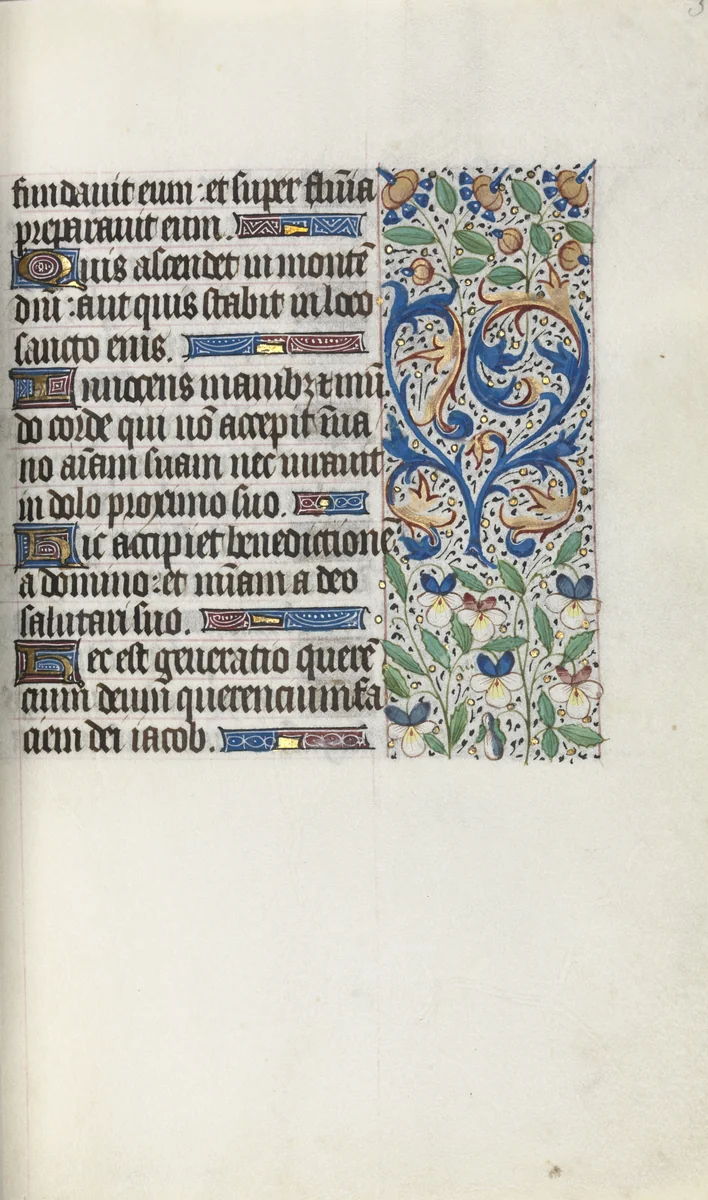 fundavit eum : et super flūīa
preparavit eum.
Quis ascendet in montē
dn̄i : aut quis stabit in loco
sancto eius.
Innocens manibꝫ ⁊ mū
do corde qui nō accepit ī va
no aīam suam nec iuravit
in dolo proximo suo.
Hic accipiet benedictionē
a domino : et mīam a deo
salutari suo.
Hec est generatio querē
cium deum querencium fa
ciem dei iacob.
3